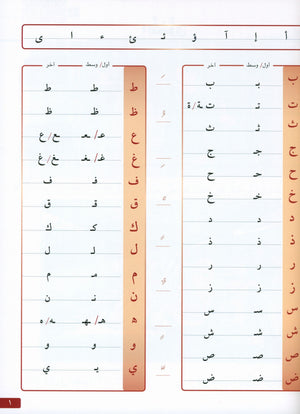 أ إ آ ؤ ئ ء ا ی
اول/ وسط آخر
ب بـ ب
ت تـ ـة/ة
ث ثـ ث
ج جـ ج
ح حـ ح
خ خـ خ
د د د
ذ ذ ذ
ر ر ر
ز ز ز
س سـ س
ش شـ ش
ص صـ ص
ض ضـ ض
اول/ وسط آخر
ط ط ط
ظ ظ ظ
ع عـ/ـعـ ـع/ع
غ غـ/ـغـ ـغ/غ
ف فـ ف
ق قـ ق
ك كـ ك
ل لـ ل
م مـ م
ن نـ ن
ه هـ/ـهـ ـه/ه
و و و
ي یـ ي
١